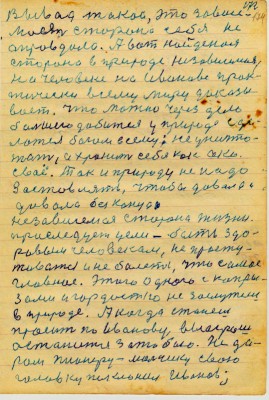 172
Вывод такой, это зависи-
мость сторона себя не
оправдала. А вот найденая
сторона в природе независимая,
на человеке на Иванове прак-
тически всему миру доказы-
вает. Что можно через дело
добится у природе сде-
латся богом всему: не уничто-
жать, а хранить себя как око
своё. Так и природу не надо
заставлять, чтобы давала а
давала
независимая сторона жизни.
преследует цели – быть здо-
ровым человекам, не просту-
живатся и не болеть, что самое
главное. Этого одного с капри-
зами и гордостью не заслужиш
в природе. А когда станем
просит по Иванову, выиграш
останится за тобою. Не да-
ром пионеру-мальчику свою
головку поклонил Иванов;